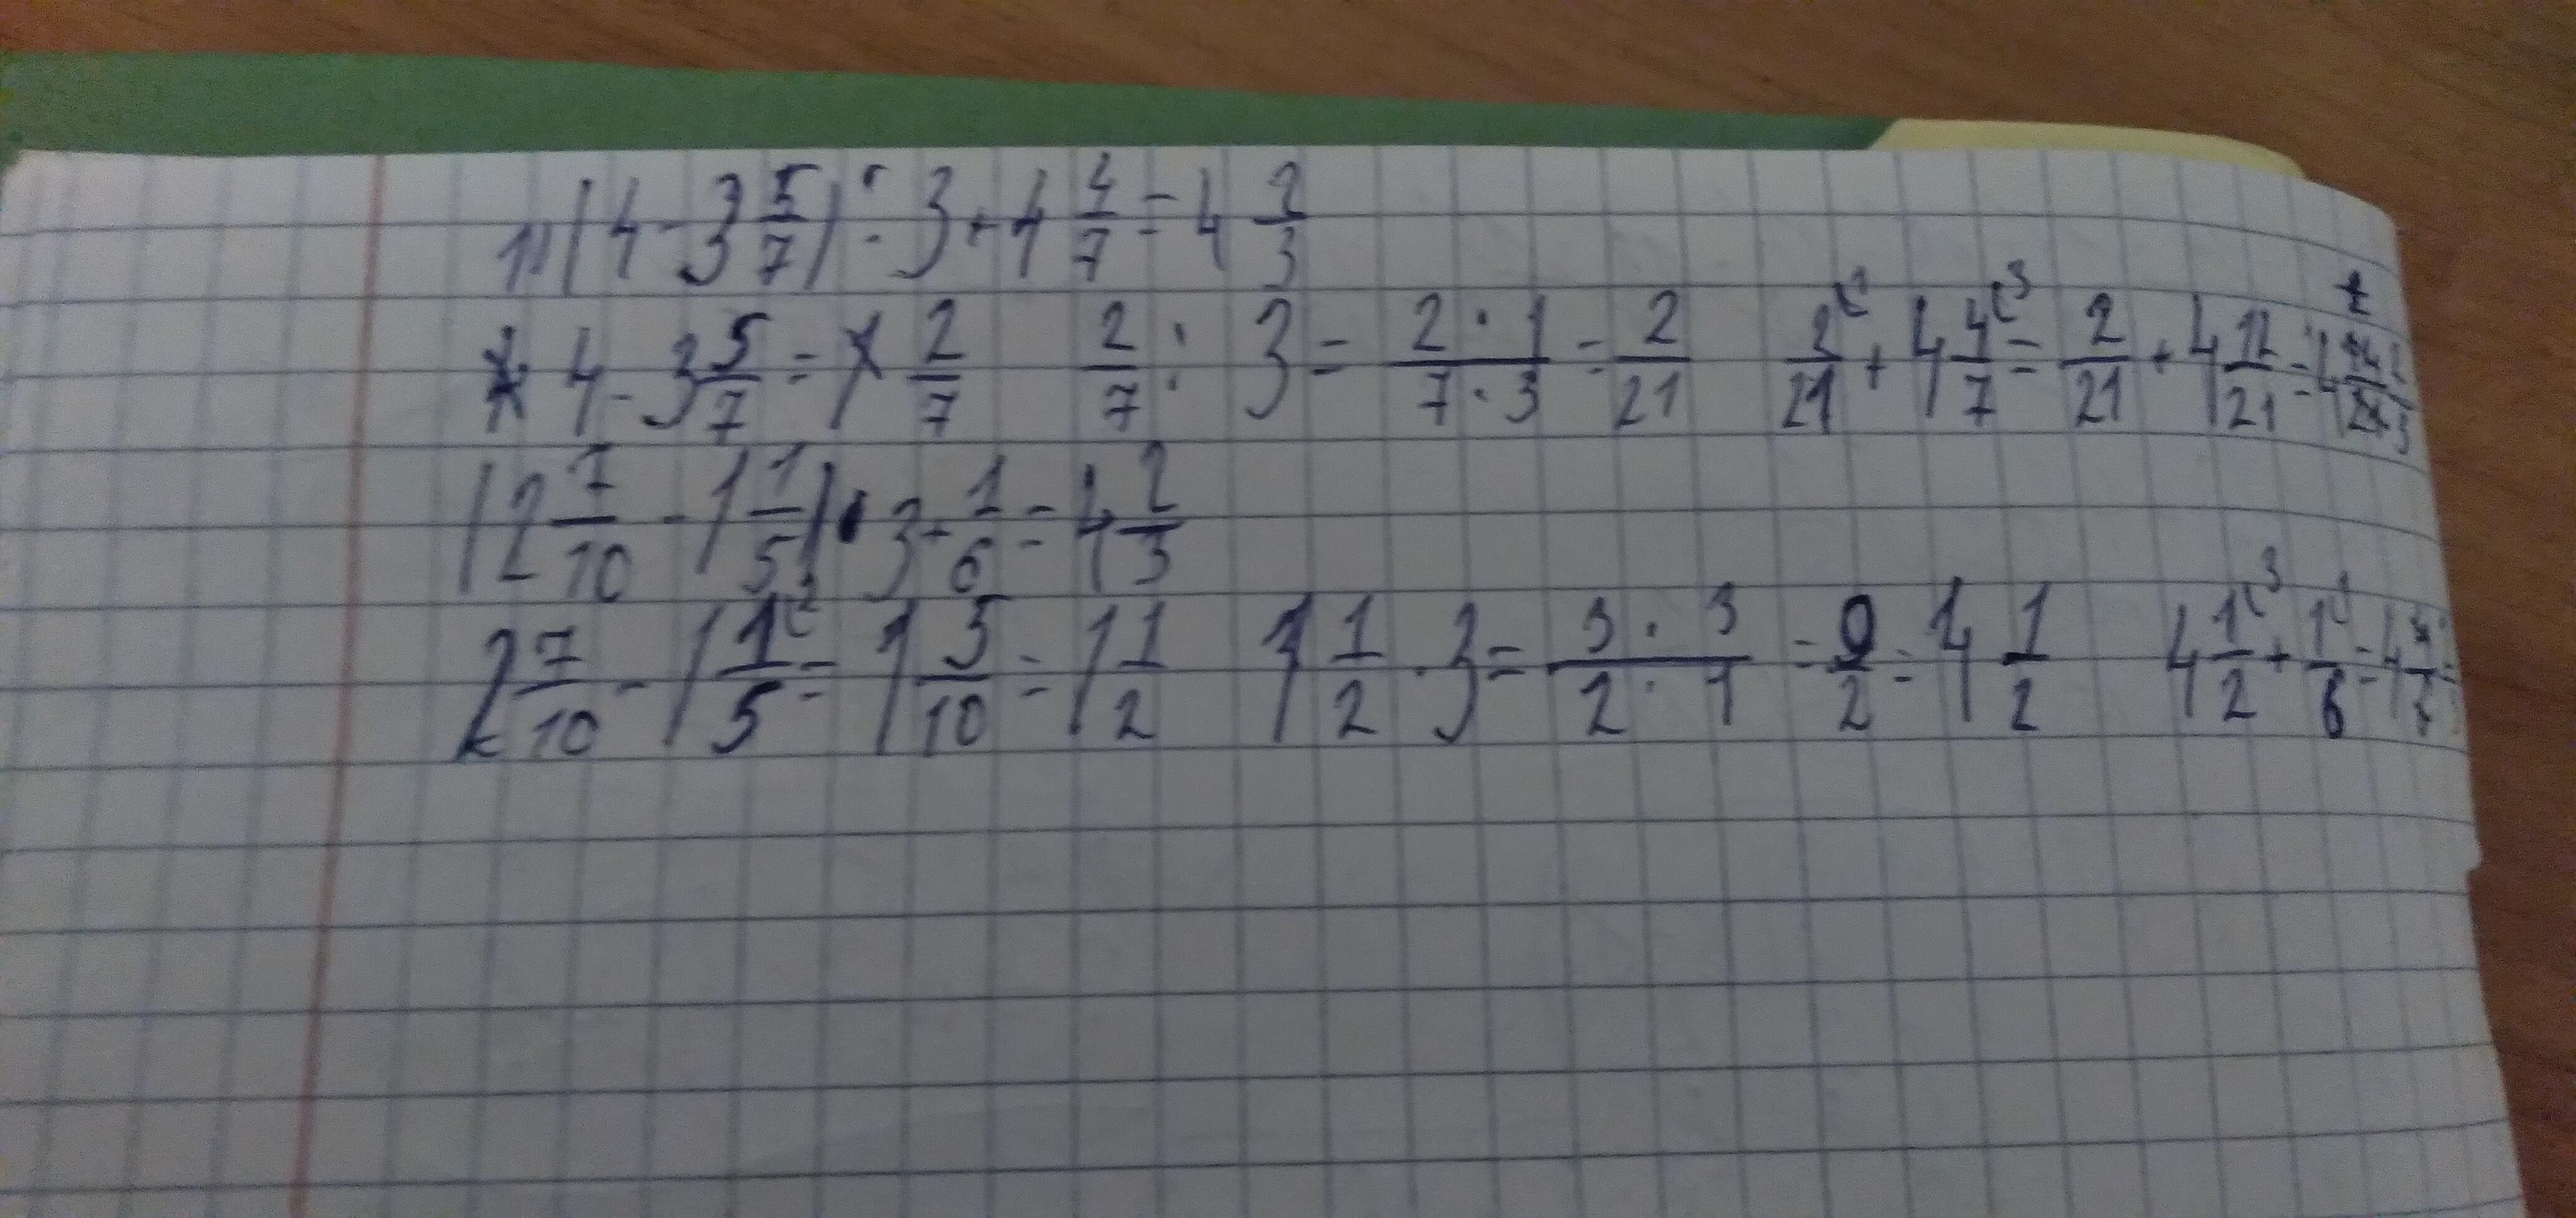 1) (4 - 3 5/7) : 3 + 4 4/7 = 4 2/3
4 - 3 5/7 = 2/7   2/7 : 3 = 2·1/7·3 = 2/21   2/21 + 4 4/7 = 2/21 + 4 12/21 = 4 14/21 2/3
(2 7/10 - 1 1/5) · 3 + 1/6 = 4 2/3
2 7/10 - 1 1/5 = 1 5/10 = 1 1/2   1 1/2 · 3 = 3·3/2·1 = 9/2 = 4 1/2   4 1/2 + 1/6 = 4